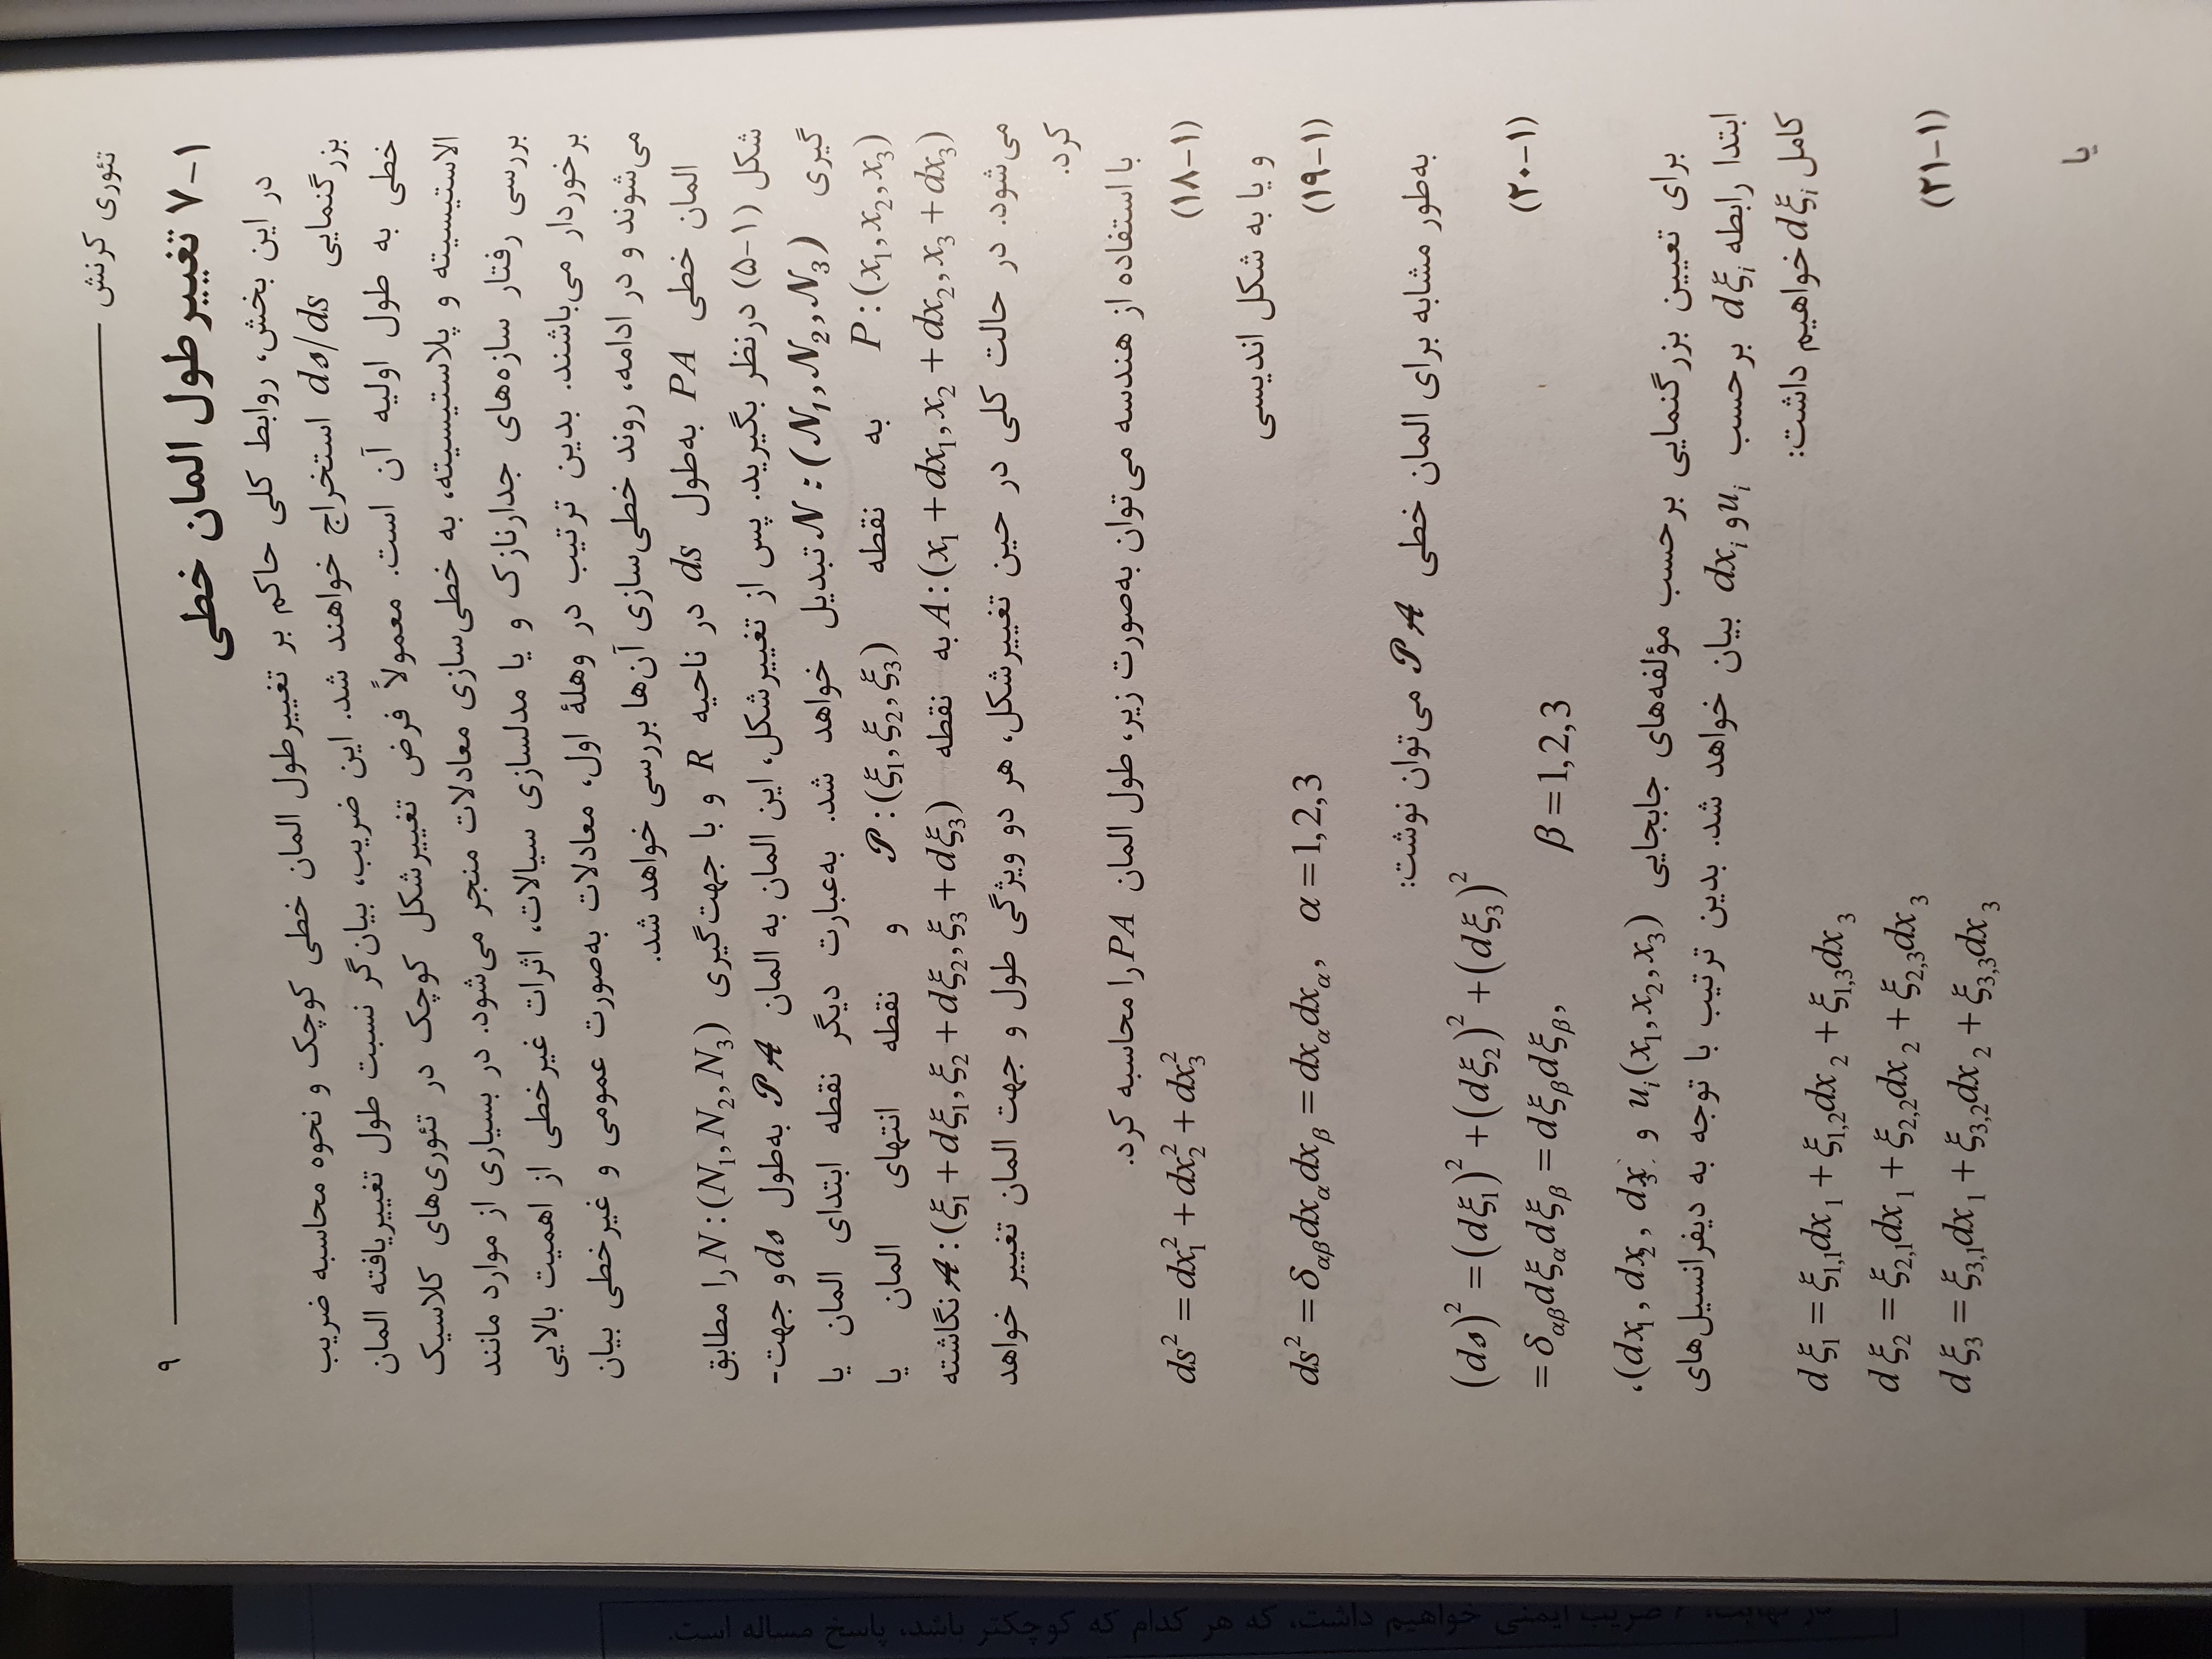 تئوری کرنش
۹
۱-۷ تغییرطول المان خطی
در این بخش، روابط کلی حاکم بر تغییرطول المان خطی کوچک و نحوه محاسبه ضریب
بزرگنمایی d𝓈/ds استخراج خواهند شد. این ضریب، بیان‌گر نسبت طول تغییریافته المان
خطی به طول اولیه آن است. معمولاً فرض تغییرشکل کوچک در تئوری‌های کلاسیک
الاستیسیته و پلاستیسیته، به خطی‌سازی معادلات منجر می‌شود. در بسیاری از موارد مانند
بررسی رفتار سازه‌های جدارنازک و یا مدلسازی سیالات، اثرات غیرخطی از اهمیت بالایی
برخوردار می‌باشند. بدین ترتیب در وهلهٔ اول، معادلات به‌صورت عمومی و غیرخطی بیان
می‌شوند و در ادامه، روند خطی‌سازی آن‌ها بررسی خواهد شد.
المان خطی PA به‌طول ds در ناحیه R و با جهت‌گیری N:(N₁,N₂,N₃) را مطابق
شکل (۱-۵) درنظر بگیرید. پس از تغییرشکل، این المان به المان 𝒫𝒜 به‌طول d𝓈 و جهت-
گیری 𝒩:(𝒩₁,𝒩₂,𝒩₃) تبدیل خواهد شد. به‌عبارت دیگر نقطه ابتدای المان یا
P:(x₁,x₂,x₃) به نقطه 𝒫:(ξ₁,ξ₂,ξ₃) و نقطه انتهای المان یا
A:(x₁+dx₁,x₂+dx₂,x₃+dx₃) به نقطه 𝒜:(ξ₁+dξ₁,ξ₂+dξ₂,ξ₃+dξ₃) نگاشته
می‌شود. در حالت کلی در حین تغییرشکل، هر دو ویژگی طول و جهت المان تغییر خواهد
کرد.
با استفاده از هندسه می‌توان به‌صورت زیر، طول المان PA را محاسبه کرد.
ds² = dx₁² + dx₂² + dx₃² (۱-۱۸)
و یا به شکل اندیسی
ds² = δ_αβ dx_α dx_β = dx_α dx_α, α = 1,2,3 (۱-۱۹)
به‌طور مشابه برای المان خطی 𝒫𝒜 می‌توان نوشت:
(d𝓈)² = (dξ₁)² + (dξ₂)² + (dξ₃)²
= δ_αβ dξ_α dξ_β = dξ_β dξ_β, β = 1,2,3 (۱-۲۰)
برای تعیین بزرگنمایی برحسب مؤلفه‌های جابجایی u_i(x₁,x₂,x₃) و (dx₁, dx₂, dx₃)،
ابتدا رابطه dξ_i برحسب u_i و dx_i بیان خواهد شد. بدین ترتیب با توجه به دیفرانسیل‌های
کامل dξ_i خواهیم داشت:
dξ₁ = ξ₁,₁dx₁ + ξ₁,₂dx₂ + ξ₁,₃dx₃
dξ₂ = ξ₂,₁dx₁ + ξ₂,₂dx₂ + ξ₂,₃dx₃ (۱-۲۱)
dξ₃ = ξ₃,₁dx₁ + ξ₃,₂dx₂ + ξ₃,₃dx₃
یا
در نهایت، ۲ ضریب ایمنی خواهیم داشت، که هر کدام که کوچکتر باشد، پاسخ مساله است.